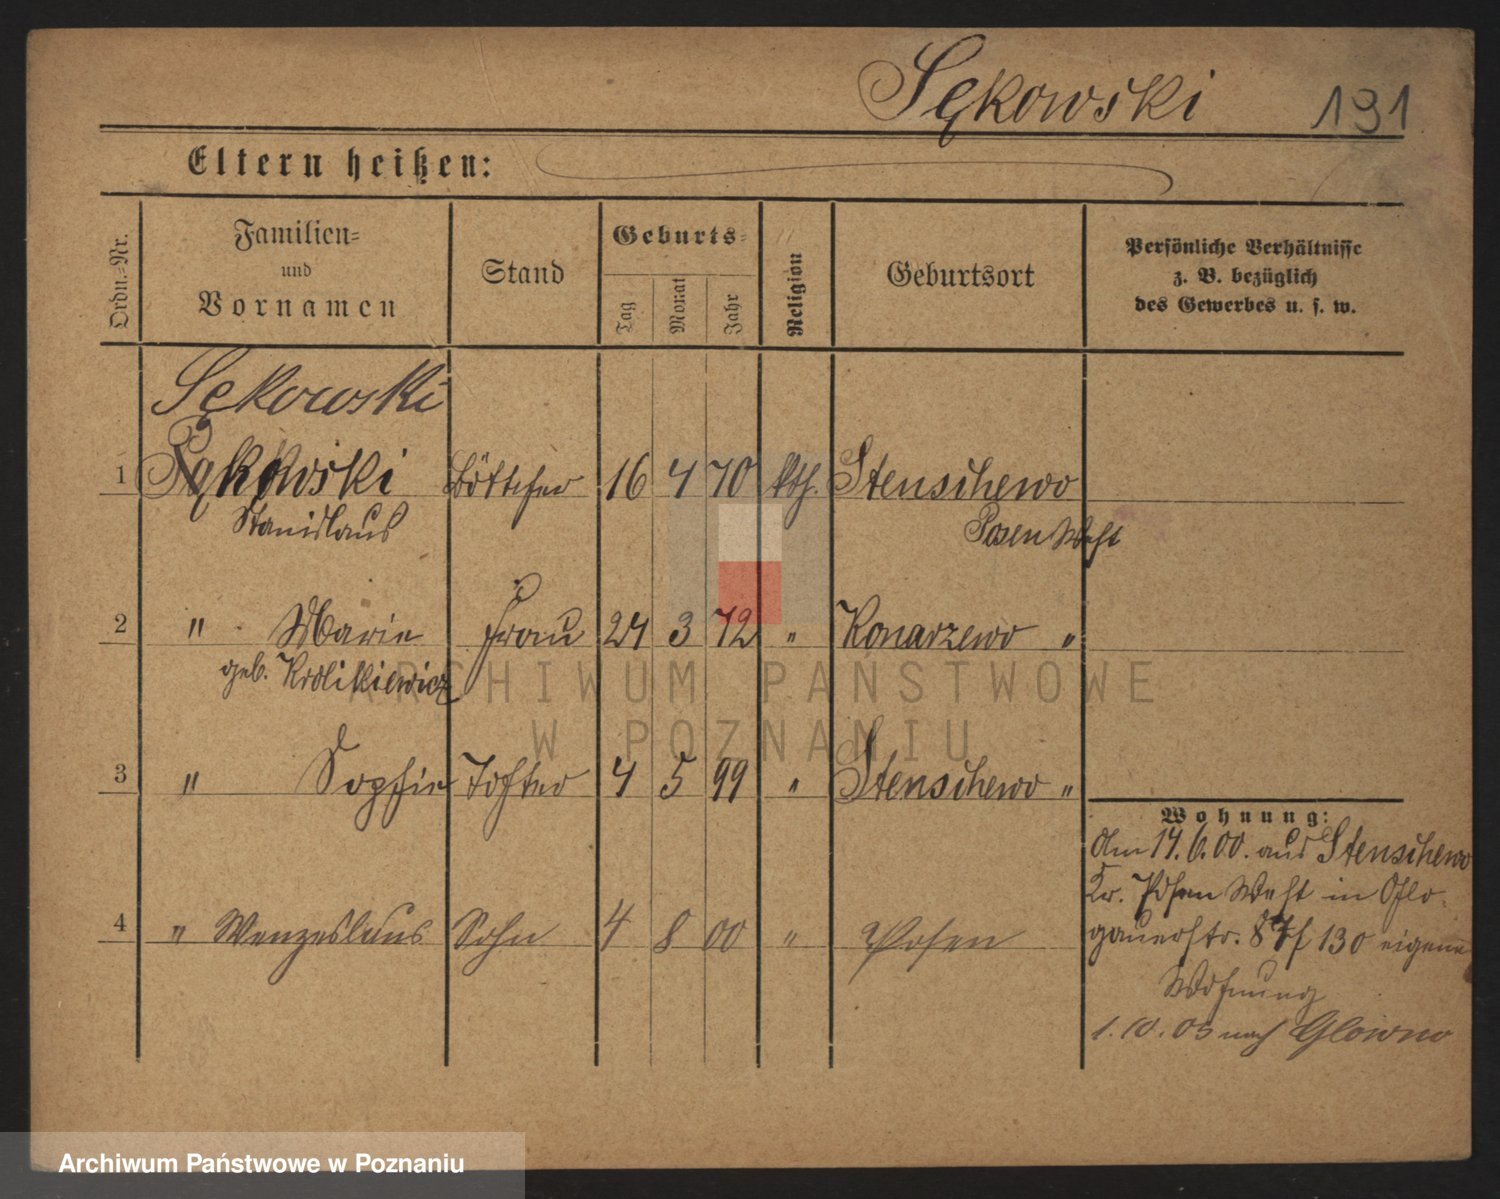 Sękowski 191
Eltern heißen:
Ordn.=Nr.
Familien=
und
Vornamen
Stand
Geburts=
Tag
Monat
Jahr
Religion
Geburtsort
Persönliche Verhältnisse
z. B. bezüglich
des Gewerbes u. s. w.
Sękowski
1 Sękowski Böttcher 16 4 70 kth. Stenschewo
Stanislaus Posen West
2 " Marie Frau 24 3 72 " Konarzewo "
geb. Krolikiewicz
3 " Sophie Tochter 4 5 99 " Stenschewo "
4 " Wenzeslaus Sohn 4 8 00 " Posen
Wohnung:
Am 14.6.00. aus Stenschewo
Kr. Posen West in Oglo-
gauerstr. 130 eigene
Wohnung
1.10.05 nach Glowno
ARCHIWUM PAŃSTWOWE
W POZNANIU
Archiwum Państwowe w Poznaniu